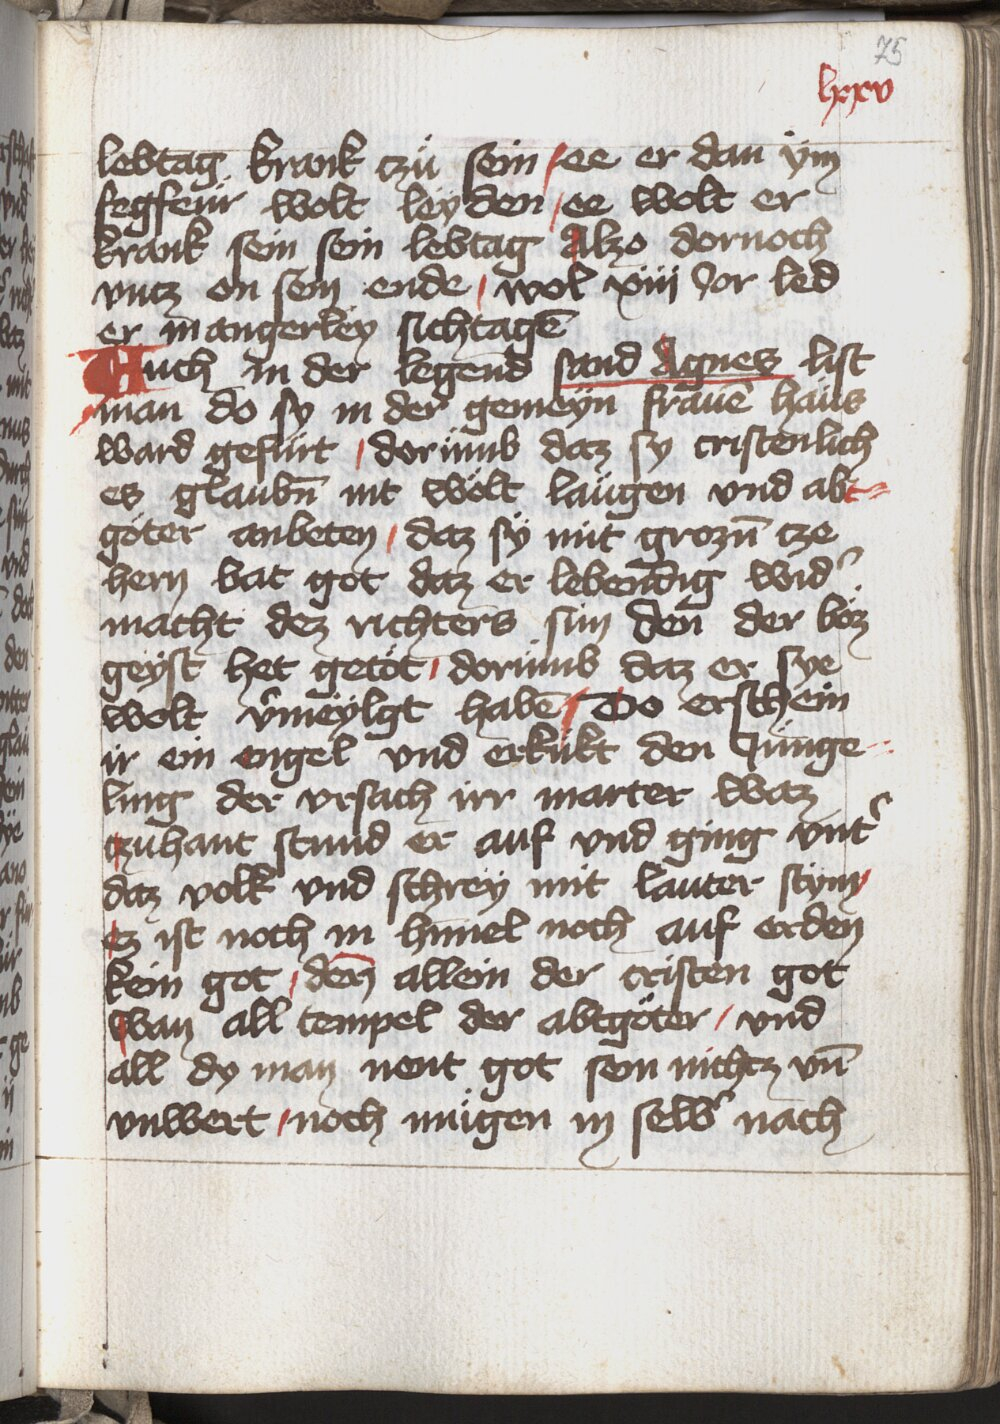 75
lxxv
lebtag krank tzu sein / ee er dan ym
fegfeur wolt leyden / ee wolt er
krank sein sein lebtag Alzo dornoch
vntz on sein ende / wol xiii Jor led
er mangerley sichtagē
Auch in der legend sand Agnes list
man do sy in der gemeyn frauē haus
ward gefurt / dorumb daz sy cristenlich
es glaubn̄ nit wolt laugen vnd abt=
göter anbeten / daz sy mit grozn̄ tze
hern bat got daz er lebendig wid̛
macht dez richters sun den der böz
geyst het getöt / dorumb daz er sye
wolt v̄meylgt habē / Do erschein
ir ein engel vnd erkukt den Junge=
ling der vrsach irr marter waz
tzuhant stund er auf vnd ging vnt̛
daz volk vnd schrey mit lauter stym /
ez ist noch in himel noch auf erden
kein got / den allein der cristen got
wan all tempel der abtgöter / vnd
all dy man nent got sein nichtz vn̄
vnwert / noch mugen in selb̛ nach